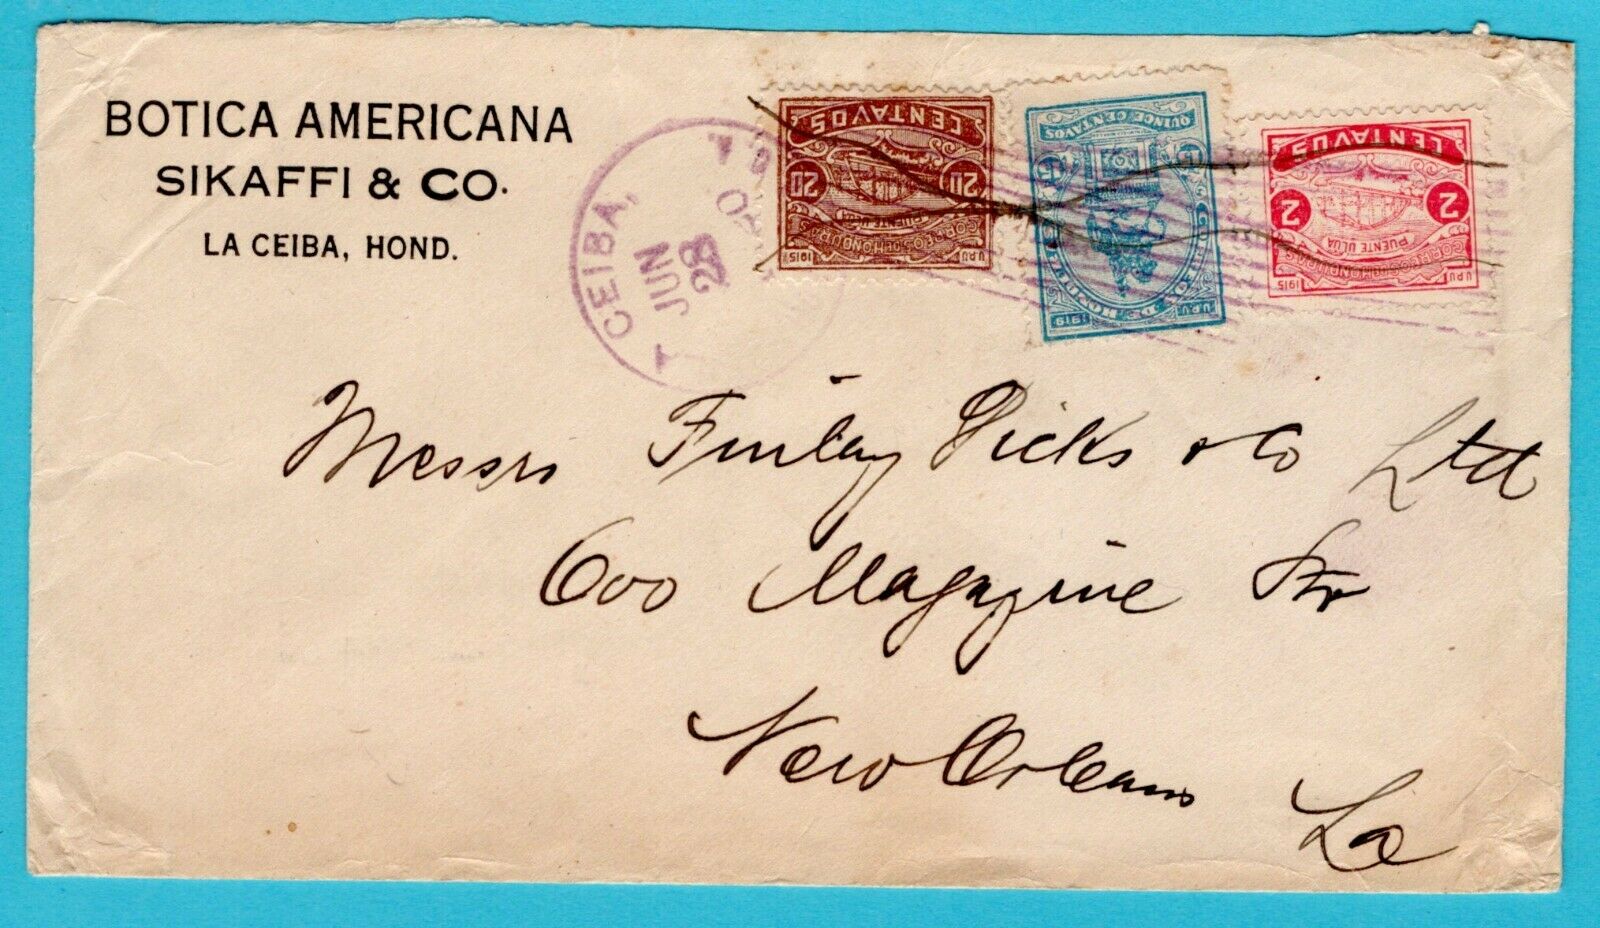 BOTICA AMERICANA
SIKAFFI & CO.
LA CEIBA, HOND.
CEIBA,
JUN
28
20
CENTAVOS
20 20
PUENTE ULUA
CORREOS DE HONDURAS
U.P.U. 1915
QUINCE CENTAVOS
15
CORREOS DE HONDURAS
U.P.U. 1919
CENTAVOS
2 2
PUENTE ULUA
CORREOS DE HONDURAS
U.P.U. 1915
Messrs Finlay Dicks & Co Ltd
600 Magazine Str
New Orleans
La